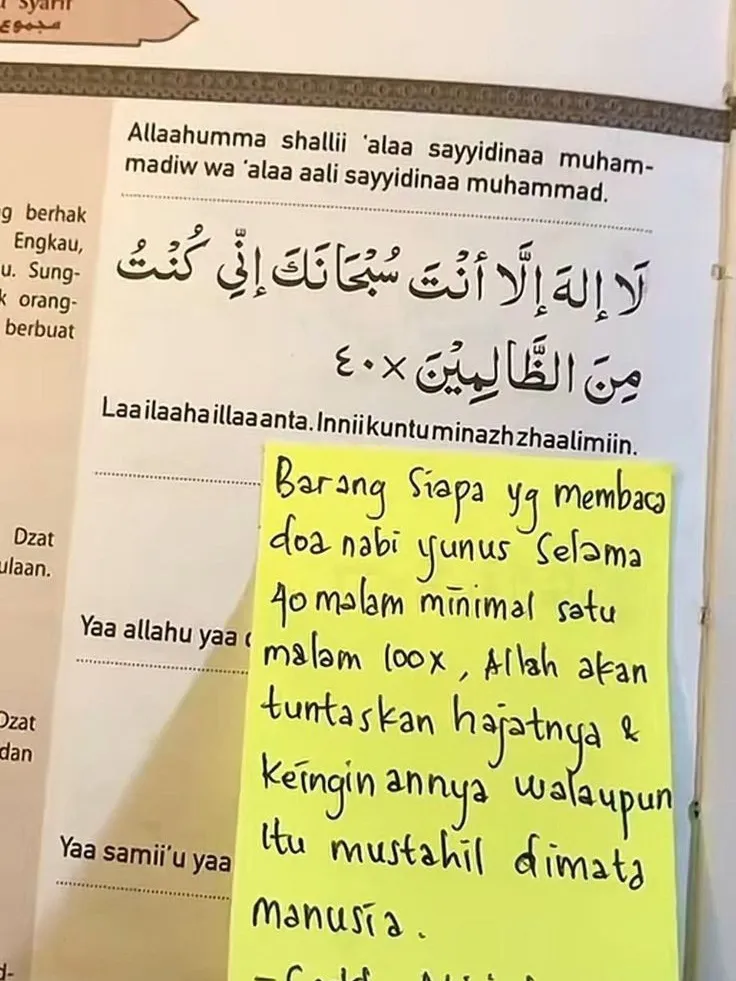 Syarif
مجموع
Allaahumma shallii 'alaa sayyidinaa muham-
madiw wa 'alaa aali sayyidinaa muhammad.
g berhak
Engkau,
u. Sung-
k orang-
berbuat
لَا إِلهَ إِلَّا أَنْتَ سُبْحَانَكَ إِنِّي كُنْتُ
مِنَ الظَّالِمِيْنَ ×٤٠
Laa ilaaha illaa anta. Innii kuntu minazh zhaalimiin.
Dzat
ulaan.
Yaa allahu yaa
Dzat
dan
Yaa samii'u yaa
d-
Barang Siapa yg membaca
doa nabi yunus Selama
40 malam minimal satu
malam 100x, Allah akan
tuntaskan hajatnya &
Keinginannya walaupun
itu mustahil dimata
manusia.